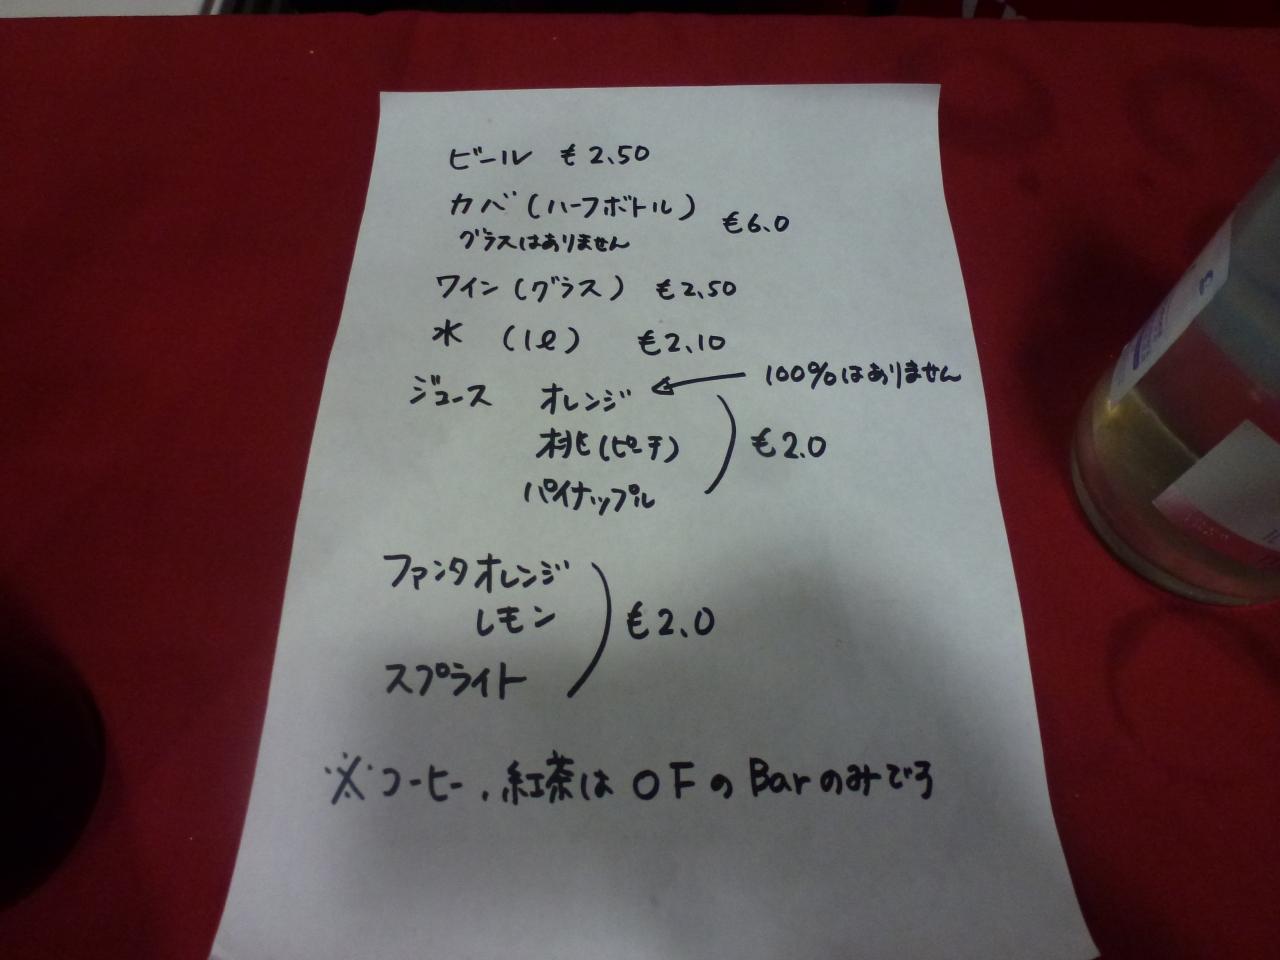 ビール €2.50
カバ(ハーフボトル) €6.0
グラスはありません
ワイン(グラス) €2.50
水 (1ℓ) €2.10
ジュース オレンジ ← 100%はありません
桃(ピーチ) €2.0
パイナップル
ファンタオレンジ
レモン €2.0
スプライト
※コーヒー、紅茶は 0FのBarのみです